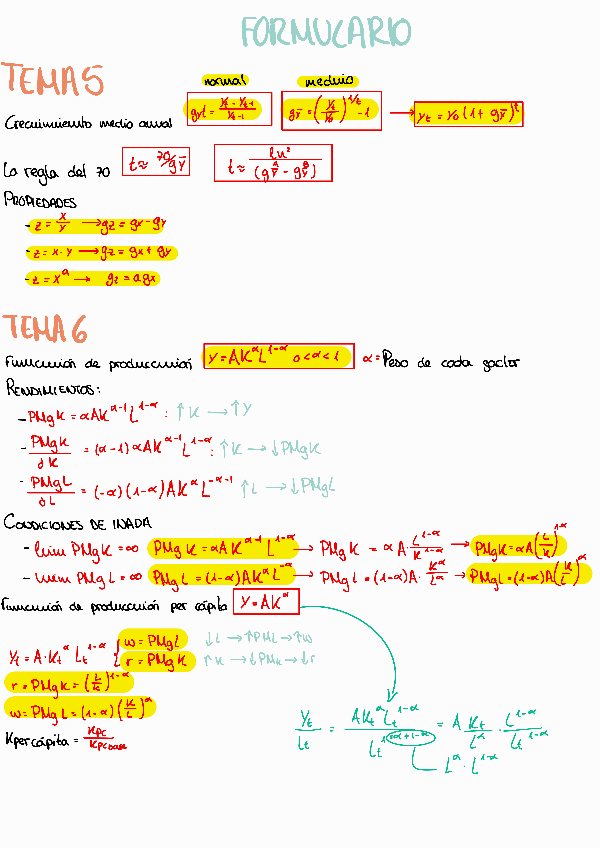 FORMULARIO
TEMA 5
normal medio
Crecimiento medio anual gyt = (Yt - Yt-1)/Yt-1 gȳ = (Yt/Y0)^1/t - 1 → Yt = Y0 (1 + gȳ)^t
La regla del 70 t ≈ 70/gȳ t ≈ ln2/(gȳ^A - gȳ^B)
PROPIEDADES
- z = x/y → gz = gx - gy
- z = x · y → gz = gx + gy
- z = x^a → gz = a gx
TEMA 6
Función de producción Y = AK^α L^1-α 0 < α < 1 α = Peso de cada factor
RENDIMIENTOS:
- PMgK = αAK^α-1 L^1-α : ↑K → ↑Y
- PMgK/∂K = (α-1) αAK^α-1 L^1-α : ↑K → ↓PMgK
- PMgL/∂L = (-α) (1-α) AK^α L^-α-1 ↑L → ↓PMgL
CONDICIONES DE INADA
- lim PMgK = ∞ PMgK = αAK^α-1 L^1-α → PMgK = αA · L^1-α/K^1-α → PMgK = αA(L/K)^1-α
- lim PMgL = ∞ PMgL = (1-α)AK^α L^-α → PMgL = (1-α)A · K^α/L^α → PMgL = (1-α)A(K/L)^α
Función de producción per cápita Y = AK^α
Yt = A · Kt^α Lt^1-α { w = PMgL ↓L → ↑PML → ↑w
r = PMgK ↑K → ↓PMK → ↓r
r = PMgK = (L/K)^1-α
w = PMgL = (1-α) (K/L)^α
K per cápita = Kpc/Kpc base
Yt/Lt = AKt^α Lt^1-α/Lt^1 = A Kt/L^α · L^1-α/Lt^1-α
L^α · L^1-α